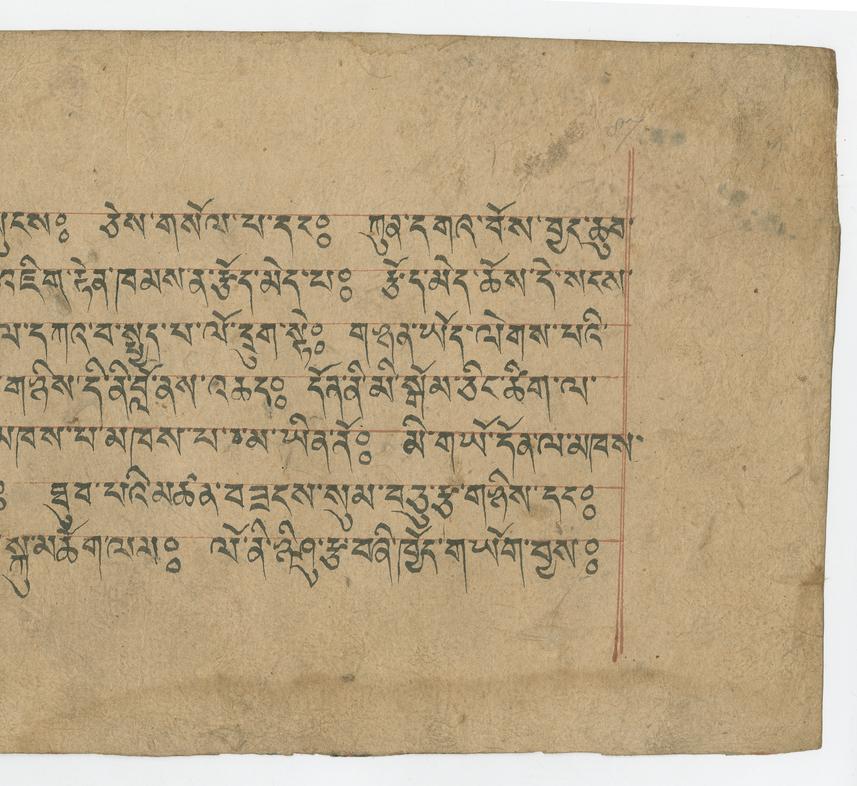 གསུངས༔ ཅེས་གསོལ་པ་དང༔ ཀུན་དགའ་བོས་བྱང་ཆུབ་
འཇིག་རྟེན་ཁམས་ན་རྩོད་མེད་པ༔ རྩོད་མེད་ཆོས་དེ་སངས་
ལ་དཀའ་བ་སྤྱད་པ་ལོ་དྲུག་སྟེ༔ གཞན་ཡོད་ལེགས་པའི་
གཉིས་དེ་ནི་བློ་ནས་འཆད༔ དོན་ནི་མི་སྒོམ་ཅིང་ཚིག་ལ་
མཁས་པ་མཁས་པ་མ་ཡིན་ནོ༔ མི་གཡོ་དོན་ལ་མཁས་
ཐུབ་པའི་མཚན་བཟངས་སུམ་བཅུ་རྩ་གཉིས་དང༔
སྐུ་མཆོག་ལས༔ ལོ་ནི་ཉི་ཤུ་རྩ་བཞི་ཁྱོད་གཡོག་བྱས༔